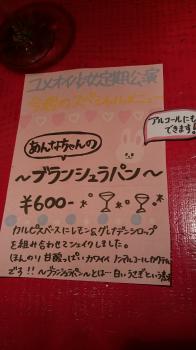 ユメオイ少女定期公演
今週のスペシャルメニュー
あんなちゃんの
～ブランシュラパン～
¥600-
カルピスベースにレモン&グレナデンシロップ
を組み合わせてシェイクしました。
ほんのり甘酸っぱいカワイイノンアルコールカクテル
です!!～ブランシュラパン～とは…白いうさぎという意味
アルコールにも
できます!